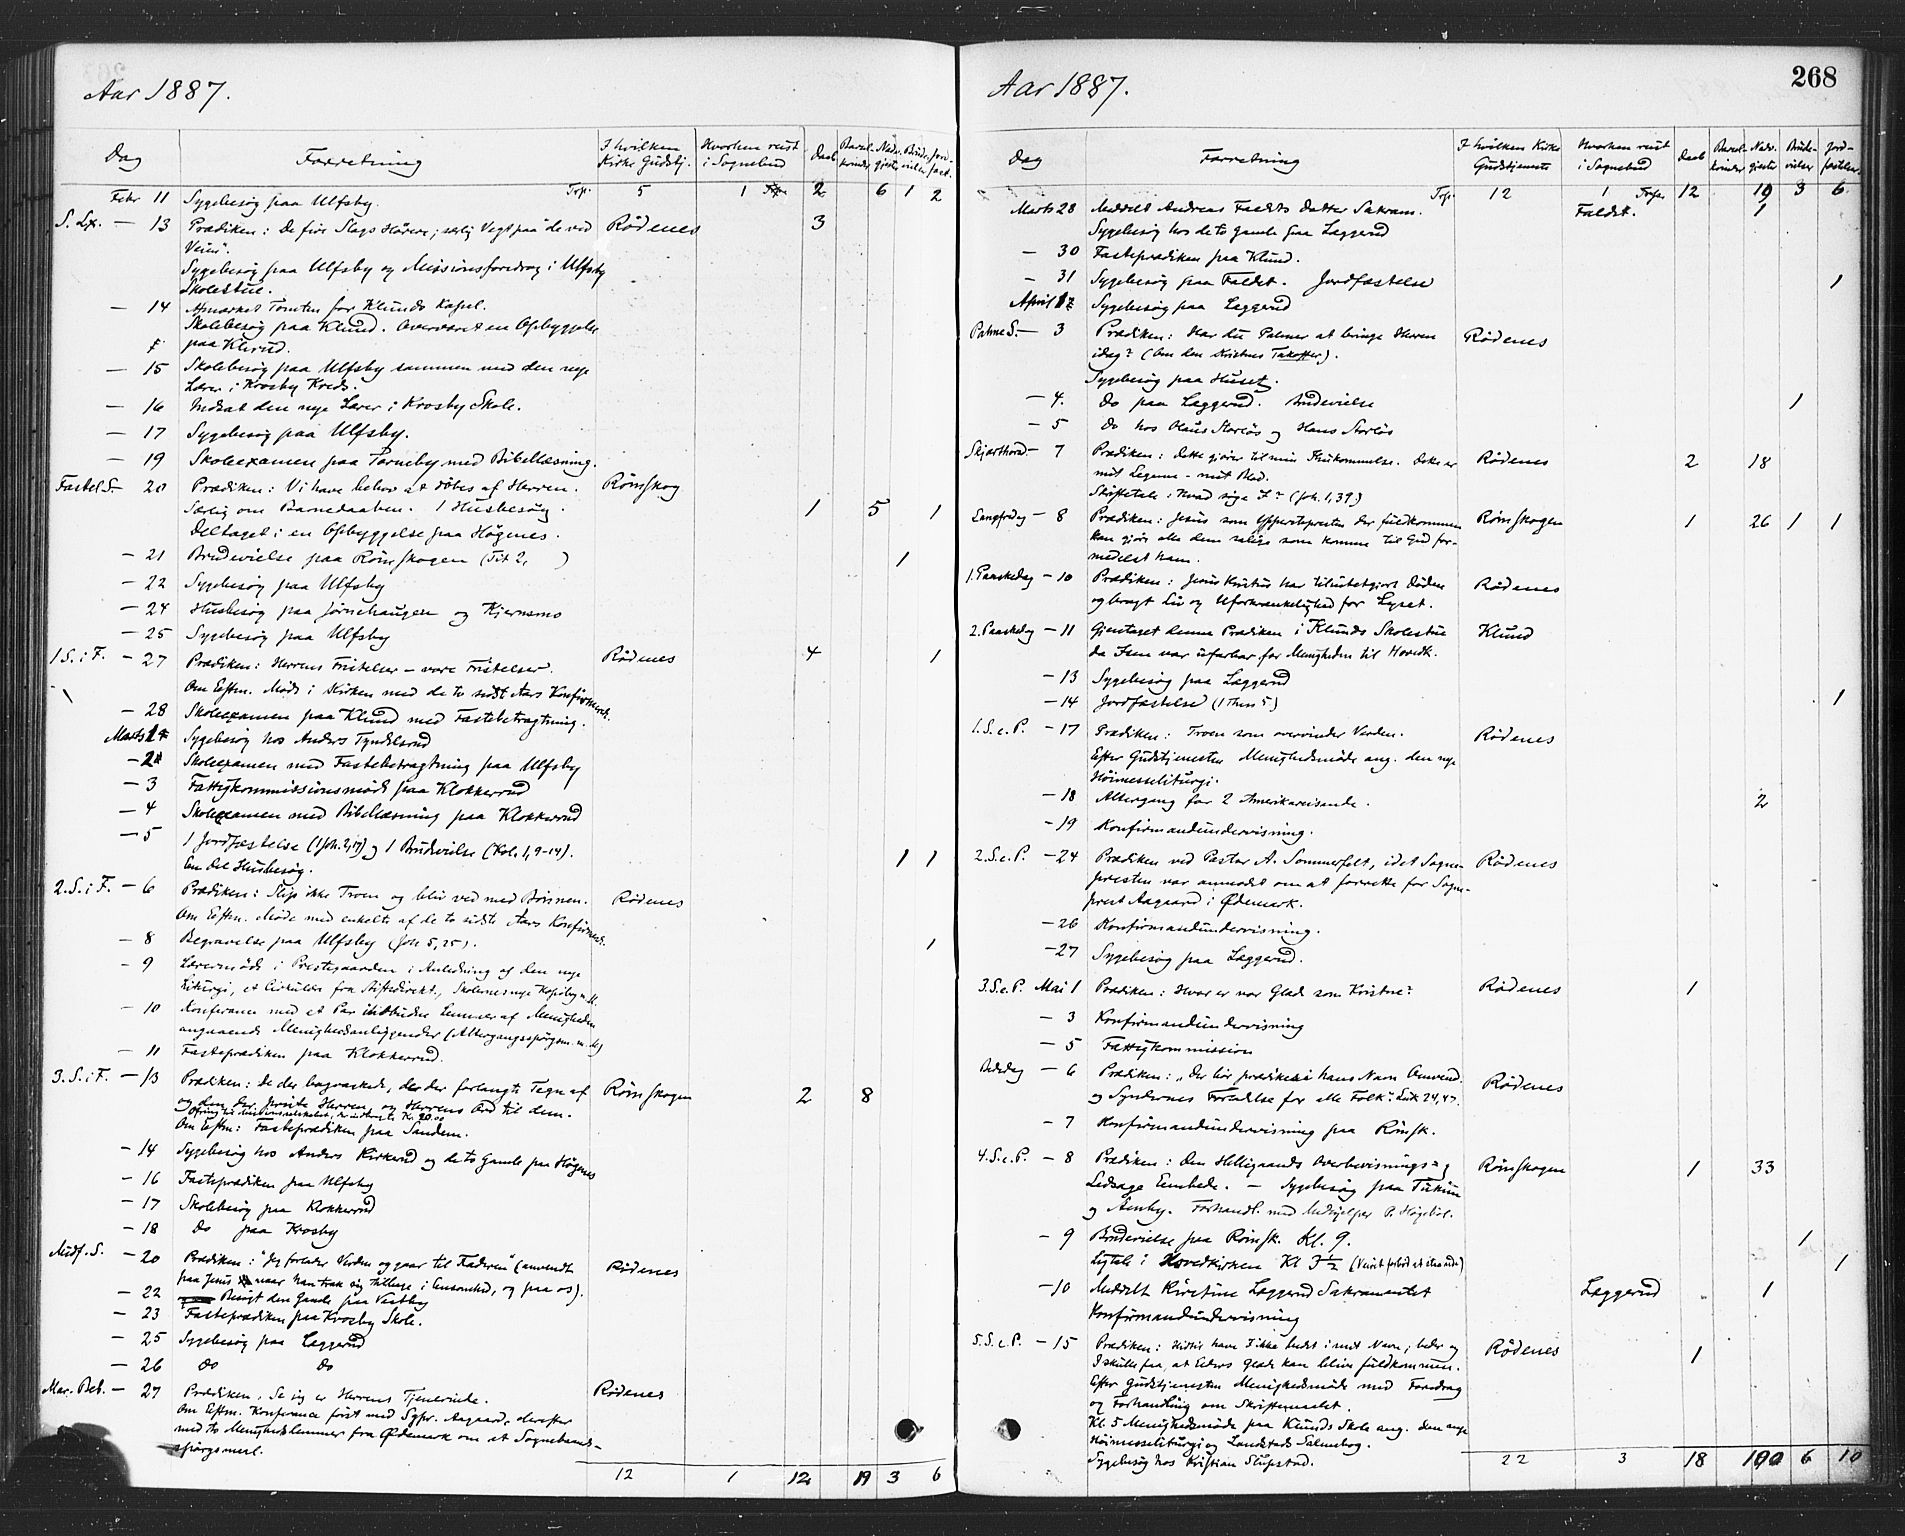 Aar 1887.
Dag Forretning I hvilken Kirke Gudstj. Hvorhen reist i Sognebud Daab Barselkvinder Nadv.gjester Brudevielser Jordfæst.
Febr 11 Sygebesøg paa Ulfsby. Trsp. 5 1 2 6 1 2
S. Sex. — 13 Prædiken: De fire Slags Hörere; særlig Vegt paa "de ved Rødenes 3
Veien".
Sygebesøg paa Ulfsby og Missionsforedrag i Ulfsby
Skolestue.
— 14 Afmærket Tomten for Klunds Kapel.
Skolebesøg paa Klund. Overværet en Opbyggelse
paa Klund.
— 15 Skolebesøg paa Ulfsby sammen med den nye
Lærer i Krosby Kreds.
— 16 Indsat den nye Lærer i Krosby Skole.
— 17 Sygebesøg paa Ulfsby.
— 19 Skoleexamen paa Tarneby med Bibellæsning.
Fastel S. — 20 Prædiken: Vi have behov at døbes af Herren. Rømskog
Særlig om Barnedaaben. 1 Husbesøg. 1 5 1
Deltaget i en Opbyggelse paa Høgenes.
— 21 Brudevielse paa Rømskogen (Tit 2, ) 1
— 22 Sygebesøg paa Ulfsby
— 24 Husbesøg paa Jørnehaugen og Kjernsmo
— 25 Sygebesøg paa Ulfsby
1 S. i F. — 27 Prædiken: Herrens Fristelser – vore Fristelser. Rødenes 4 1
Om Eftm. Møde i Kirken med de to sidst Aars Konfirmerede.
— 28 Skoleexamen paa Klund med Fastebetragtning.
Marts 1 Sygebesøg hos Anders Tyndelsrud
— 2 Skoleexamen med Fastebetragtning paa Ulfsby
— 3 Fattigkommissionsmøde paa Klokkerrud
— 4 Skoleexamen med Bibellæsning paa Klokkerud
— 5 1 Jordfæstelse (1 Joh. 2, 17) og 1 Brudevielse (Kol. 1, 9-14). 1 1
En Del Husbesøg.
2. S. i F. — 6 Prædiken: Slip ikke Troen og bliv ved med Bønnen. Rødenes
Om Eftm. Møde med enkelte af de to sidste Aars Konfirmerede.
— 8 Begravelse paa Ulfsby (Joh 5, 25). 1
— 9 Lærermøde i Prestegaarden i Anledning af den nye
Liturgi, et Cirkulær fra Stiftsdirekt., Skolernes nye
— 10 Konferance med et Par indbudne Lemmer af Menigheden
angaaende Menighedsanliggender (Altergangsspørgsm. m. m.)
— 11 Fasteprædiken paa Klokkerrud.
3. S. i F. — 13 Prædiken: De der bagvaskede, de der forlangte Tegn af Rømskogen 2 8
og den der priste Herren, og Herrens Ord til dem.
Om Eftm: Fasteprædiken paa Sandem.
— 14 Sygebesøg hos Anders Kirkerud og de to Gamle paa Høgenes
— 16 Fasteprædiken paa Ulfsby
— 17 Skolebesøg paa Klokkerrud
— 18 Do paa Krosby
Midf. S. — 20 Prædiken: "Jeg forlader Verden og gaar til Faderen" (anvendt Rødenes
paa Jesus naar han trak sig tilbage i Ensomhed, og paa os).
— 22 Besøgt den Gamle paa Vestby
— 23 Fasteprædiken paa Krosby Skole.
— 25 Sygebesøg paa Læggerud
— 26 Do Do
Mar. Beb. — 27 Prædiken: Se jeg er Herrens Tjenerinde. Rødenes
Om Eftm. Konferance først med Sgpr. Aagaard, derefter
med to Menighedslemmer fra Ødemark om et Sognebaands-
spørgsmaal.
12 1 12 19 3 6
268
Aar 1887.
Dag Forretning I hvilken Kirke Gudstjeneste Hvorhen reist i Sognebud Daab Barselkvinder Nadv.gjester Brudevielser Jordfæstelser
Trsp. 12 1 Trsp. 12 19 3 6
Marts 28 Meddelt Andreas Faldets Datter Sakram. Faldet. 1
Sygebesøg hos de to Gamle paa Læggerud
— 30 Fasteprædiken paa Klund.
— 31 Sygebesøg paa Faldet. Jordfæstelse 1
April 1 Sygebesøg paa Læggerud
Palme S. — 3 Prædiken: Har du Palmer at bringe Herren Rødenes
idag? (Om den Kristnes Takoffer).
Sygebesøg paa Huset.
— 4. Do paa Læggerud. Brudevielse 1
— 5 Do hos Olaus Storløs og Hans Storløs
Skjærthorsd. — 7 Prædiken: Dette gjører til min Ihukommelse. Dette er Rødenes 2 18
mit Legeme – mit Blod.
Skriftetale: Hvad søge I? (Joh. 1, 39.)
Langfredag — 8 Prædiken: Jesus som Ypperstepresten der fuldkommen Rømskogen 1 26 1 1
kan gjøre alle dem salige som komme til Gud for-
medelst ham.
1. Paaskedag — 10 Prædiken: Jesus Kristus har tilintetgjort Døden Rødenes
og bragt Liv og Uforkrænkelighed for Lyset.
2. Paaskedag — 11 Gjentaget denne Prædiken i Klunds Skolestue Klund
da Isen var ufarbar for Menigheden til Hovedk.
— 13 Sygebesøg paa Læggerud
— 14 Jordfæstelse (1 Thess 5) 1
1. S. e. P. — 17 Prædiken: Troen som overvinder Verden. Rødenes
Efter Gudstjenesten Menighedsmøde ang. den nye
Høimesseliturgi.
— 18 Altergang for 2 Amerikareisende. 2
— 19 Konfirmandundervisning.
2. S. e. P. — 24 Prædiken ved Pastor A. Sommerfelt, idet Sogne- Rødenes
presten var anmodet om at forrette for Sogne-
prest Aagaard i Ødemark.
— 26 Konfirmandundervisning.
— 27 Sygebesøg paa Læggerud.
3. S. e. P. Mai 1 Prædiken: Hvor er vor Glæde som Kristne? Rødenes 1
— 3 Konfirmandundervisning
— 5 Fattigkommission
Bededag — 6 Prædiken: „Der bør prædikes i hans Navn Omvend. Rødenes
og Syndernes Forladelse for alle Folk" Luk 24, 47.
— 7 Konfirmandundervisning paa Rømsk.
4. S. e. P. — 8 Prædiken: Den Helligaands Overbevisnings- og Rømskogen 1 33
Ledsage Embede. — Sygebesøg paa Tukun
og Aenby. Forhandl. med Medhjelper P. Høgebøl.
— 9 Brudevielse paa Rømsk. Kl. 9. 1
Ligtale i Hovedkirken Kl 3½ 1
— 10 Meddelt Kirstine Læggerud Sakramentet Læggerud 1
Konfirmandundervisning
5. S. e. P. — 15 Prædiken: Hidtil have I ikke bedet i mit Navn; beder og Rødenes 1
I skulle faa, at Eders Glæde kan blive fuldkommen.
Efter Gudstjenesten Menighedsmøde med Foredrag
og Forhandling om Skriftemaalet.
Kl. 5 Menighedsmøde paa Klunds Skole ang. den nye
Høimesseliturgi og Landstads Salmebog.
Sygebesøg hos Kristian Slupstad.
22 3 18 100 6 10